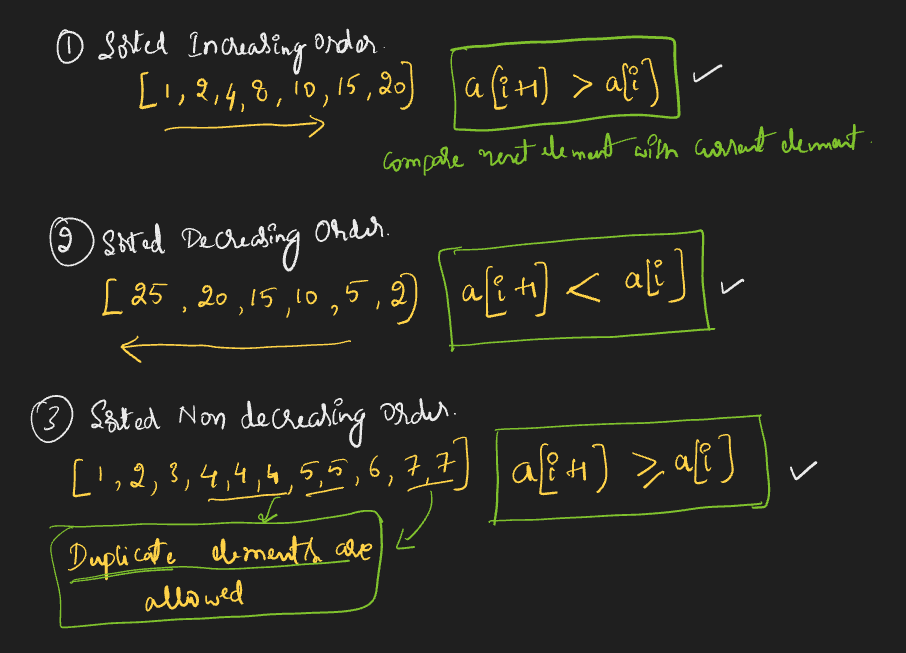 ① Sorted Increasing order.
[1, 2, 4, 8, 10, 15, 20] a[i+1] > a[i] ✓
Compare next element with current element.
② Sorted Decreasing Order.
[25, 20, 15, 10, 5, 2] a[i+1] < a[i] ✓
③ Sorted Non decreasing order.
[1, 2, 3, 4, 4, 4, 5, 5, 6, 7, 7] a[i+1] ≥ a[i] ✓
Duplicate elements are
allowed